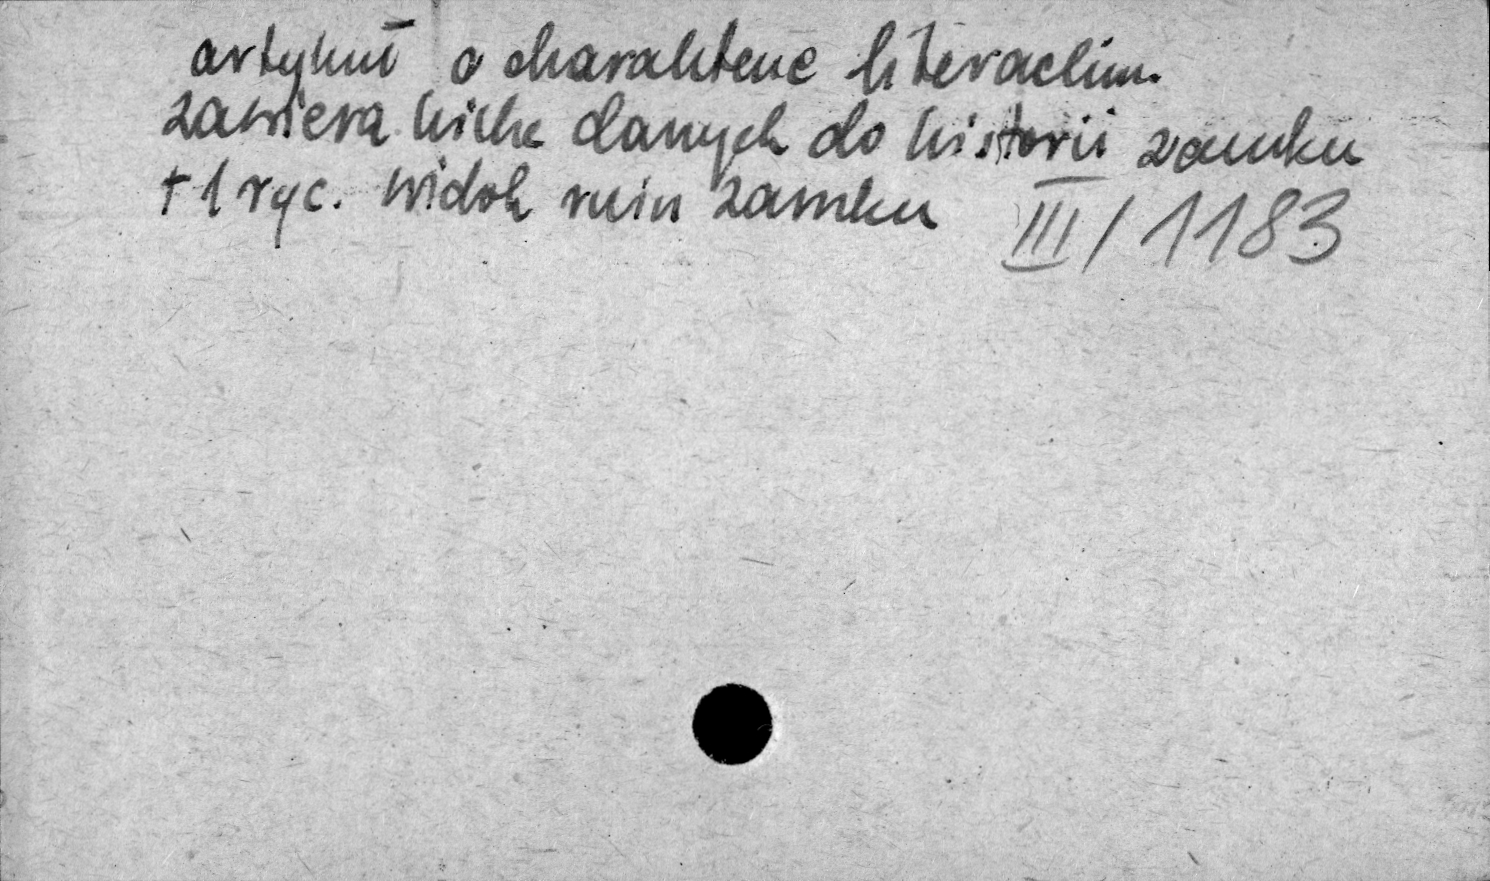 artykuł o charakterze literackim.
zawiera kilka danych do historii zamku
+ 1 ryc. widok ruin zamku III / 1183